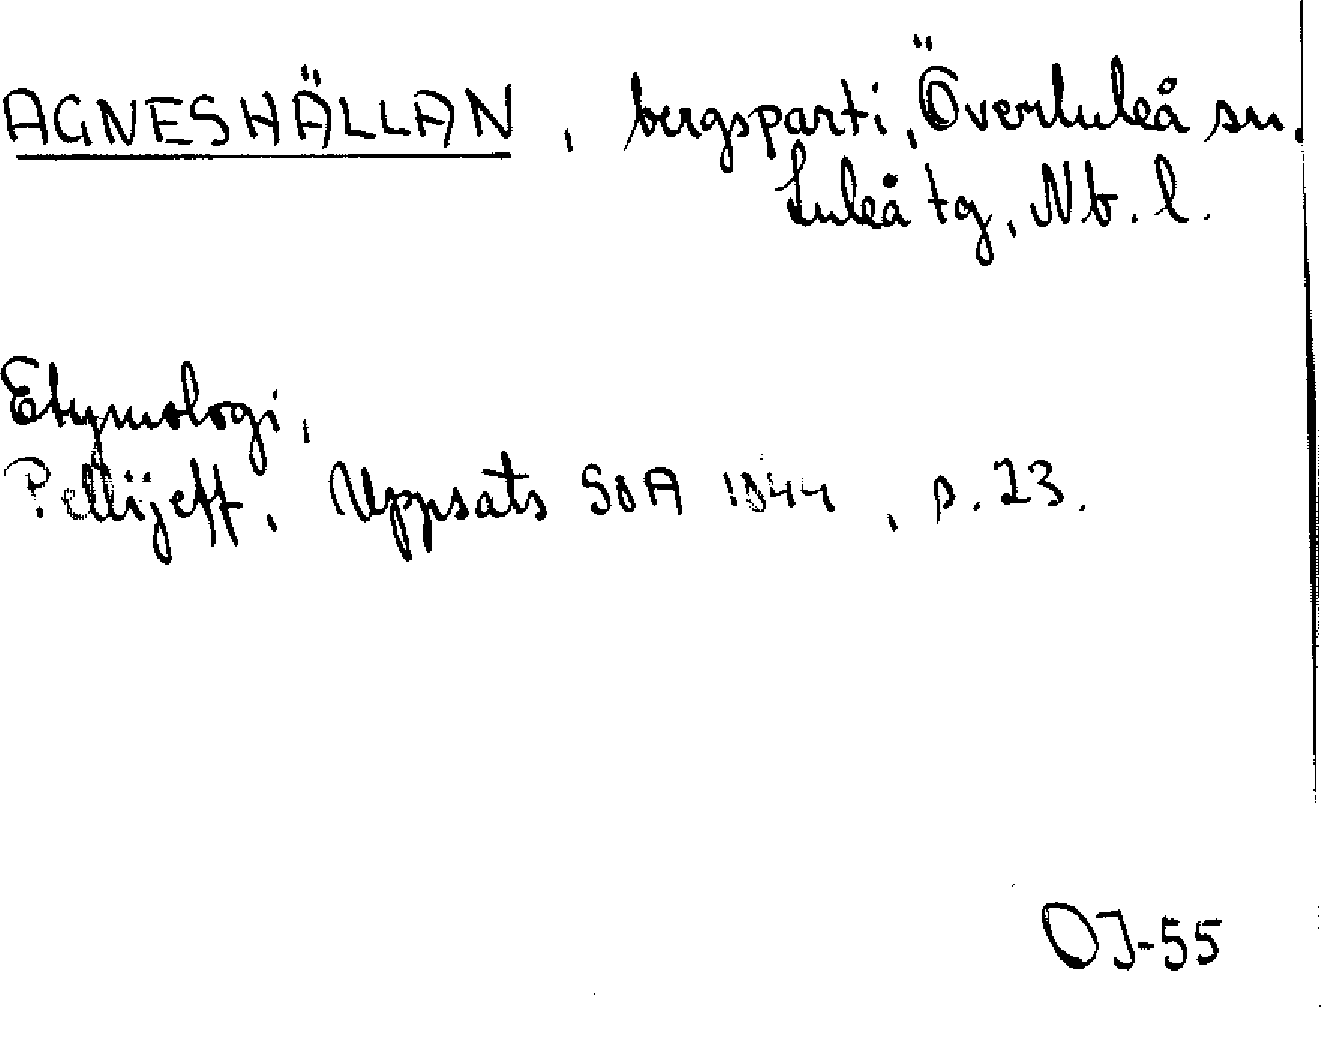 AGNESHÄLLAN, bergsparti, Överluleå sn.
Luleå tg, Nb. l.
Etymologi,
Pellijeff, Uppsats SOA 1944, s. 23.
OJ-55